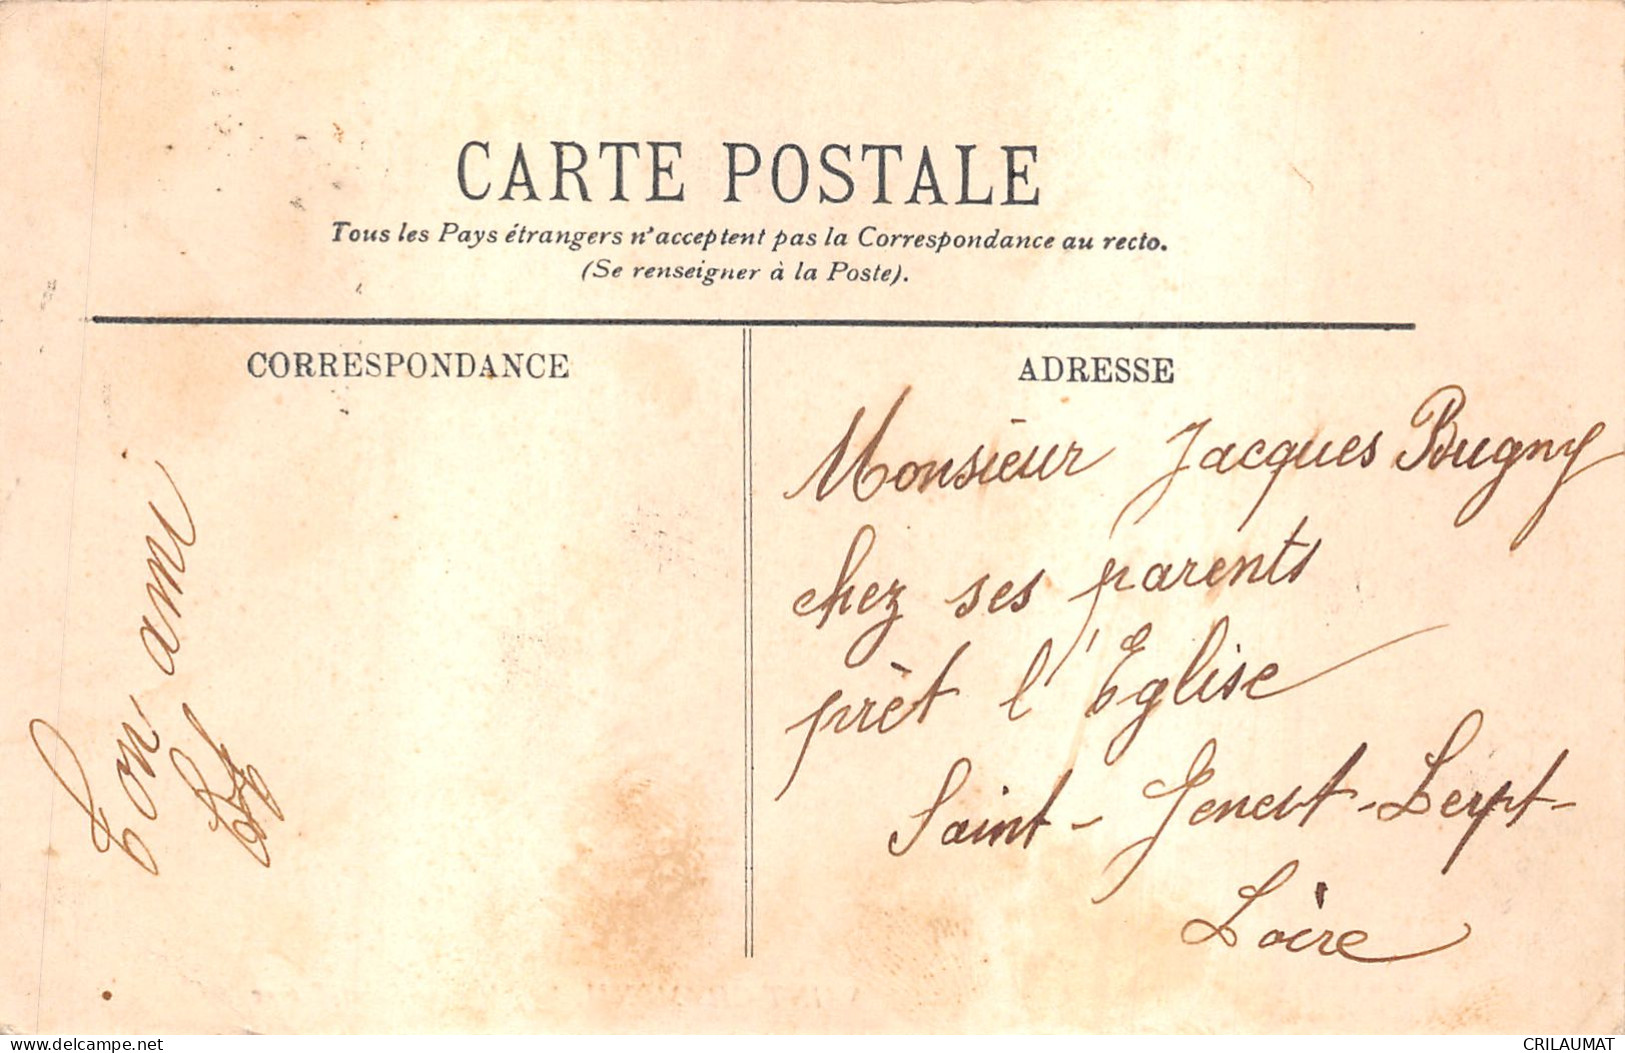 CARTE POSTALE
Tous les Pays étrangers n'acceptent pas la Correspondance au recto.
(Se renseigner à la Poste).
CORRESPONDANCE
ADRESSE
Ton ami
Monsieur Jacques Bugny
chez ses parents
prèt l'Eglise
Saint-Genest-Lerpt-
Loire
www.delcampe.net
CRILAUMAT